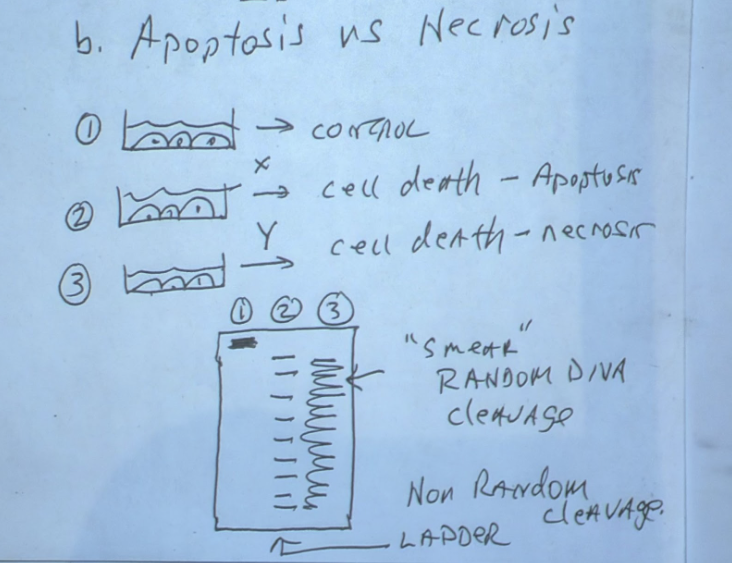 b. Apoptosis vs Necrosis
① → control
② X → cell death - Apoptosis
③ Y → cell death - necrosis
① ② ③
"Smear"
RANDOM DNA
cleavage
Non Random
cleavage.
LADDER